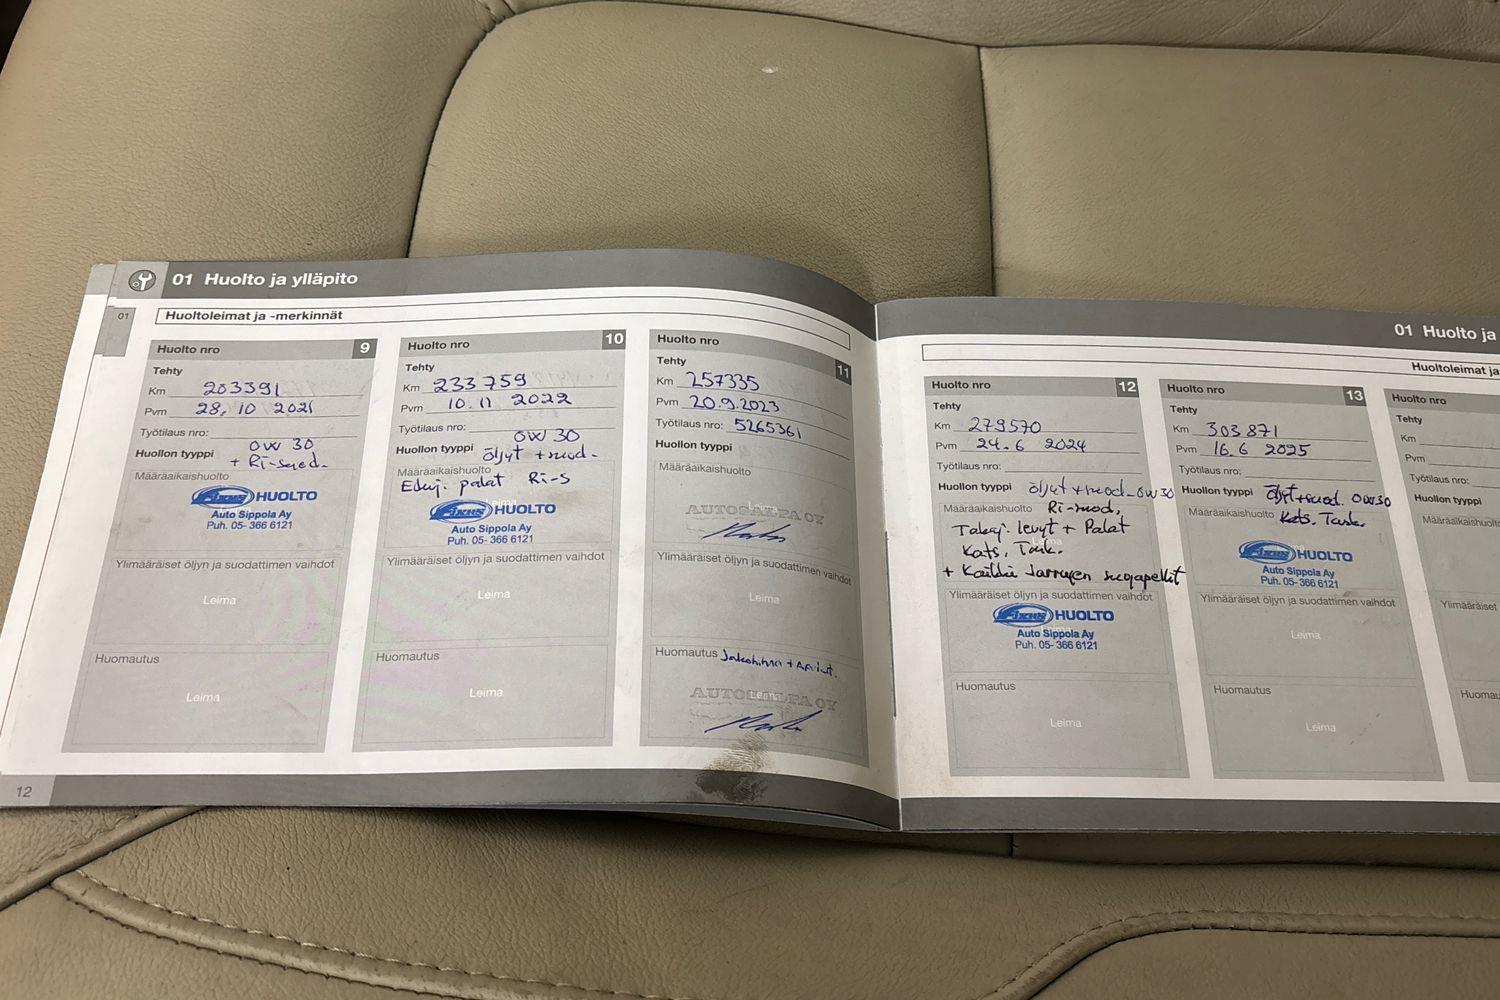 01 Huolto ja ylläpito
01
Huoltoleimat ja -merkinnät
Huolto nro 9
Tehty
Km 203391
Pvm 28.10 2021
Työtilaus nro:
Huollon tyyppi 0W 30
+ Ri-suod.
Määräaikaishuolto
Fixus HUOLTO
Auto Sippola Ay
Puh. 05- 366 6121
Ylimääräiset öljyn ja suodattimen vaihdot
Leima
Huomautus
Leima
12
Huolto nro 10
Tehty
Km 233 759
Pvm 10.11 2022
Työtilaus nro:
Huollon tyyppi 0W 30
öljyt + suod.
Määräaikaishuolto
Etuj. palat Ri-S
Leima
Fixus HUOLTO
Auto Sippola Ay
Puh. 05- 366 6121
Ylimääräiset öljyn ja suodattimen vaihdot
Leima
Huomautus
Leima
Huolto nro 11
Tehty
Km 257335
Pvm 20.9.2023
Työtilaus nro: 5265361
Huollon tyyppi
Määräaikaishuolto
AUTOSALPA OY
Ylimääräiset öljyn ja suodattimen vaihdot
Leima
Huomautus Jakohihna +
AUTOSALPA OY
Leima
01 Huolto ja
Huoltoleimat ja
Huolto nro 12
Tehty
Km 279570
Pvm 24.6 2024
Työtilaus nro:
Huollon tyyppi öljyt + suod. 0W30
Määräaikaishuolto Ri-suod,
Takaj. levyt + Palat
Leima
Kats. Tark.
+ Kaikki Jarrujen suojapellit
Ylimääräiset öljyn ja suodattimen vaihdot
Fixus HUOLTO
Auto Sippola Ay
Puh. 05- 366 6121
Huomautus
Leima
Huolto nro 13
Tehty
Km 303 871
Pvm 16.6 2025
Työtilaus nro:
Huollon tyyppi öljyt + suod. 0W30
Määräaikaishuolto Kats. Tark.
Fixus HUOLTO
Auto Sippola Ay
Puh. 05- 366 6121
Ylimääräiset öljyn ja suodattimen vaihdot
Leima
Huomautus
Leima
Huolto nro
Tehty
Km
Pvm
Työtilaus nro:
Huollon tyyppi
Ylimääräiset